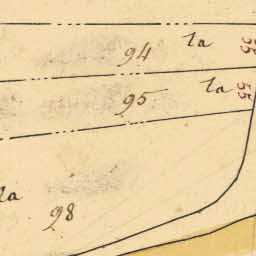 94 la 55
95 la 55
la
98